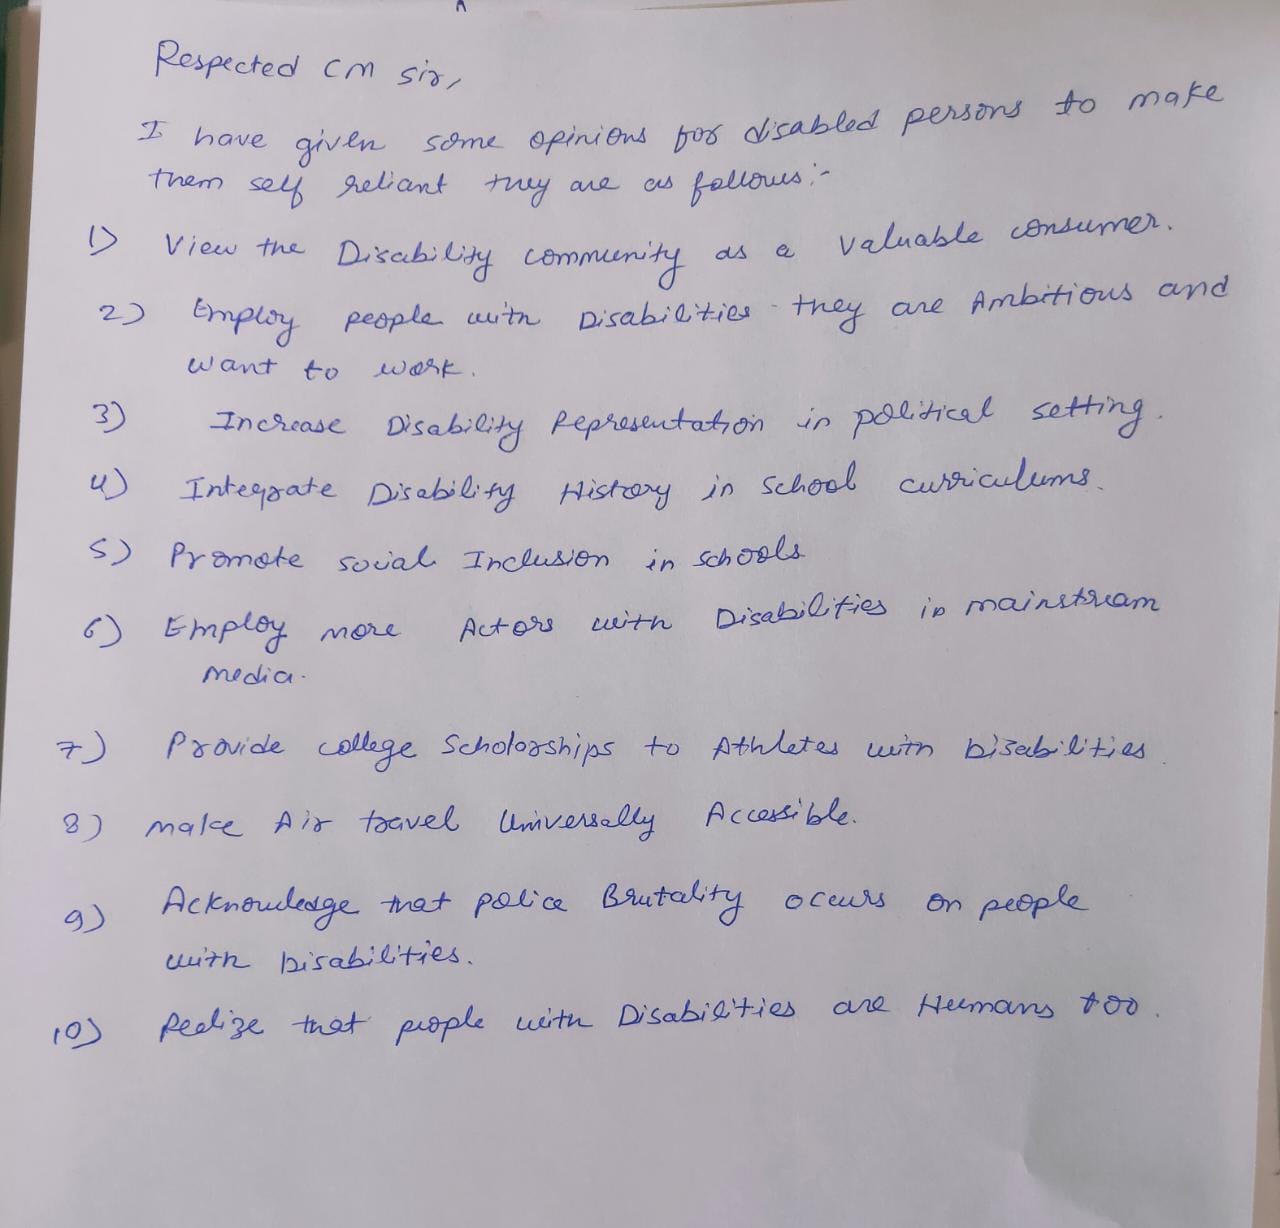 Respected CM sir,
I have given some opinions for disabled persons to make
them self reliant they are as follows :-
1) View the Disability community as a valuable consumer.
2) Employ people with Disabilities - they are Ambitious and
want to work.
3) Increase Disability Representation in political setting.
4) Integrate Disability History in School curriculums.
5) Promote social Inclusion in schools
6) Employ more Actors with Disabilities in mainstream
media.
7) Provide college Scholorships to Athletes with Disabilities.
8) make Air travel Universally Accessible.
9) Acknowledge that police Brutality occurs on people
with Disabilities.
10) Realize that people with Disabilities are Humans too.